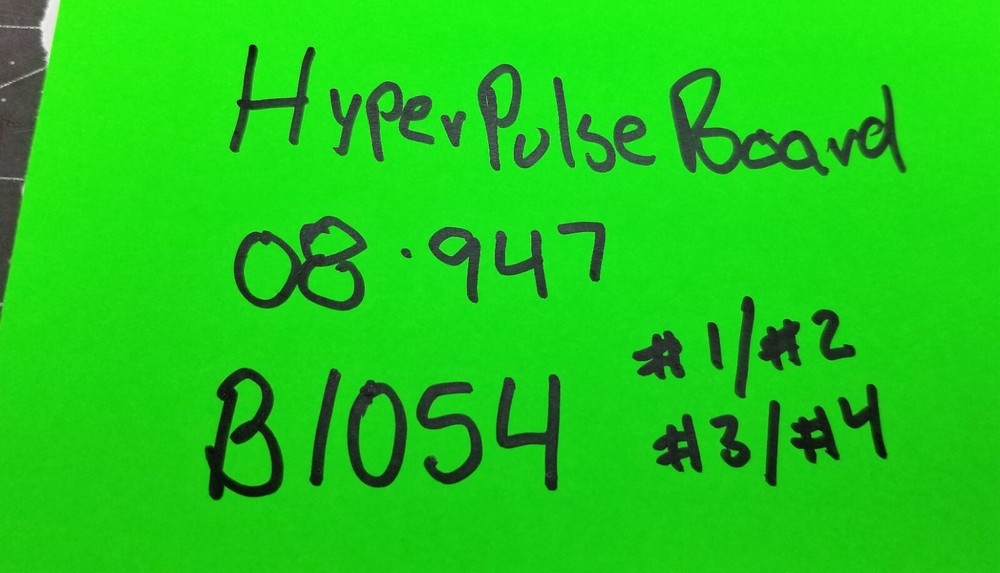 HyperPulse Board
08.947
#1/#2
B1054
#3/#4